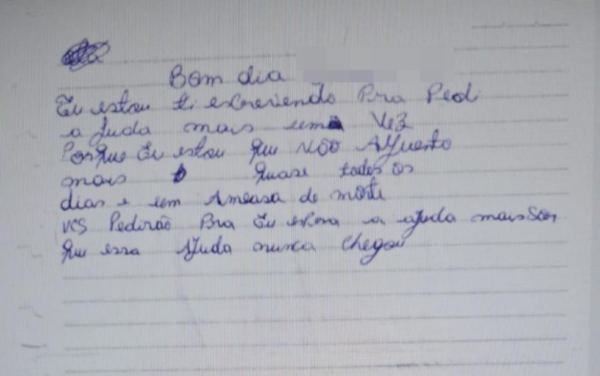 Bom dia
Eu estou ti escreviendo Pra Pedi
a Juda mais uma Vez
Porque Eu estou que NãO AguentO
mais quase todos os
dias e um Ameasa de morte
vcs Pedirão Pra Eu espera a ajuda mais
que essa Ajuda nunca chegou